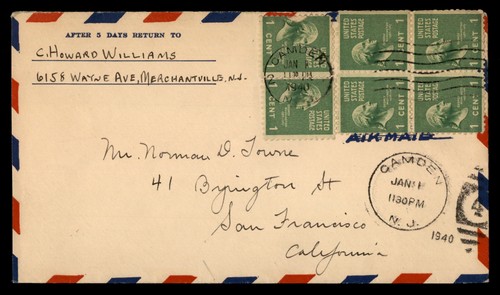 AFTER 5 DAYS RETURN TO
C. HOWARD WILLIAMS
6158 WAYNE AVE, MERCHANTVILLE, N.J.
UNITED STATES POSTAGE
1 CENT 1
UNITED STATES POSTAGE
1 CENT 1
UNITED STATES POSTAGE
1 CENT 1
UNITED STATES POSTAGE
1 CENT 1
UNITED STATES POSTAGE
1 CENT 1
UNITED STATES POSTAGE
1 CENT 1
CAMDEN
JAN
1940
AIR MAIL
Mr. Norman D. Towne
41 Byington St
San Francisco
California
CAMDEN
JAN 11
1130 PM
N. J.
1940
4